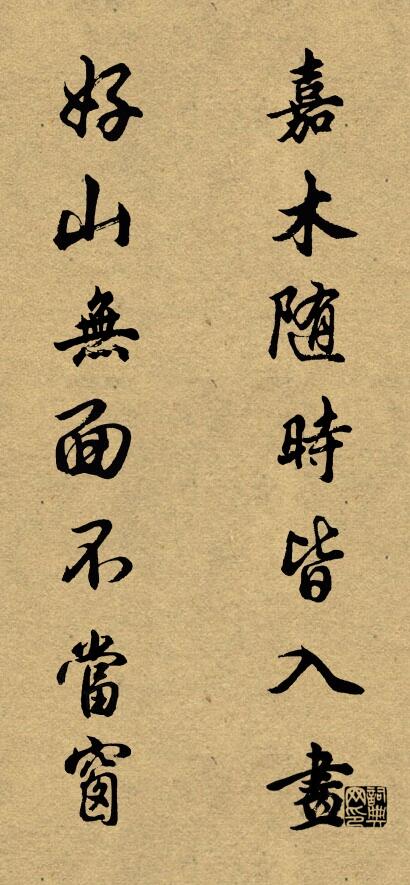 嘉木随時皆入畫
好山無面不當窗
詞典网印